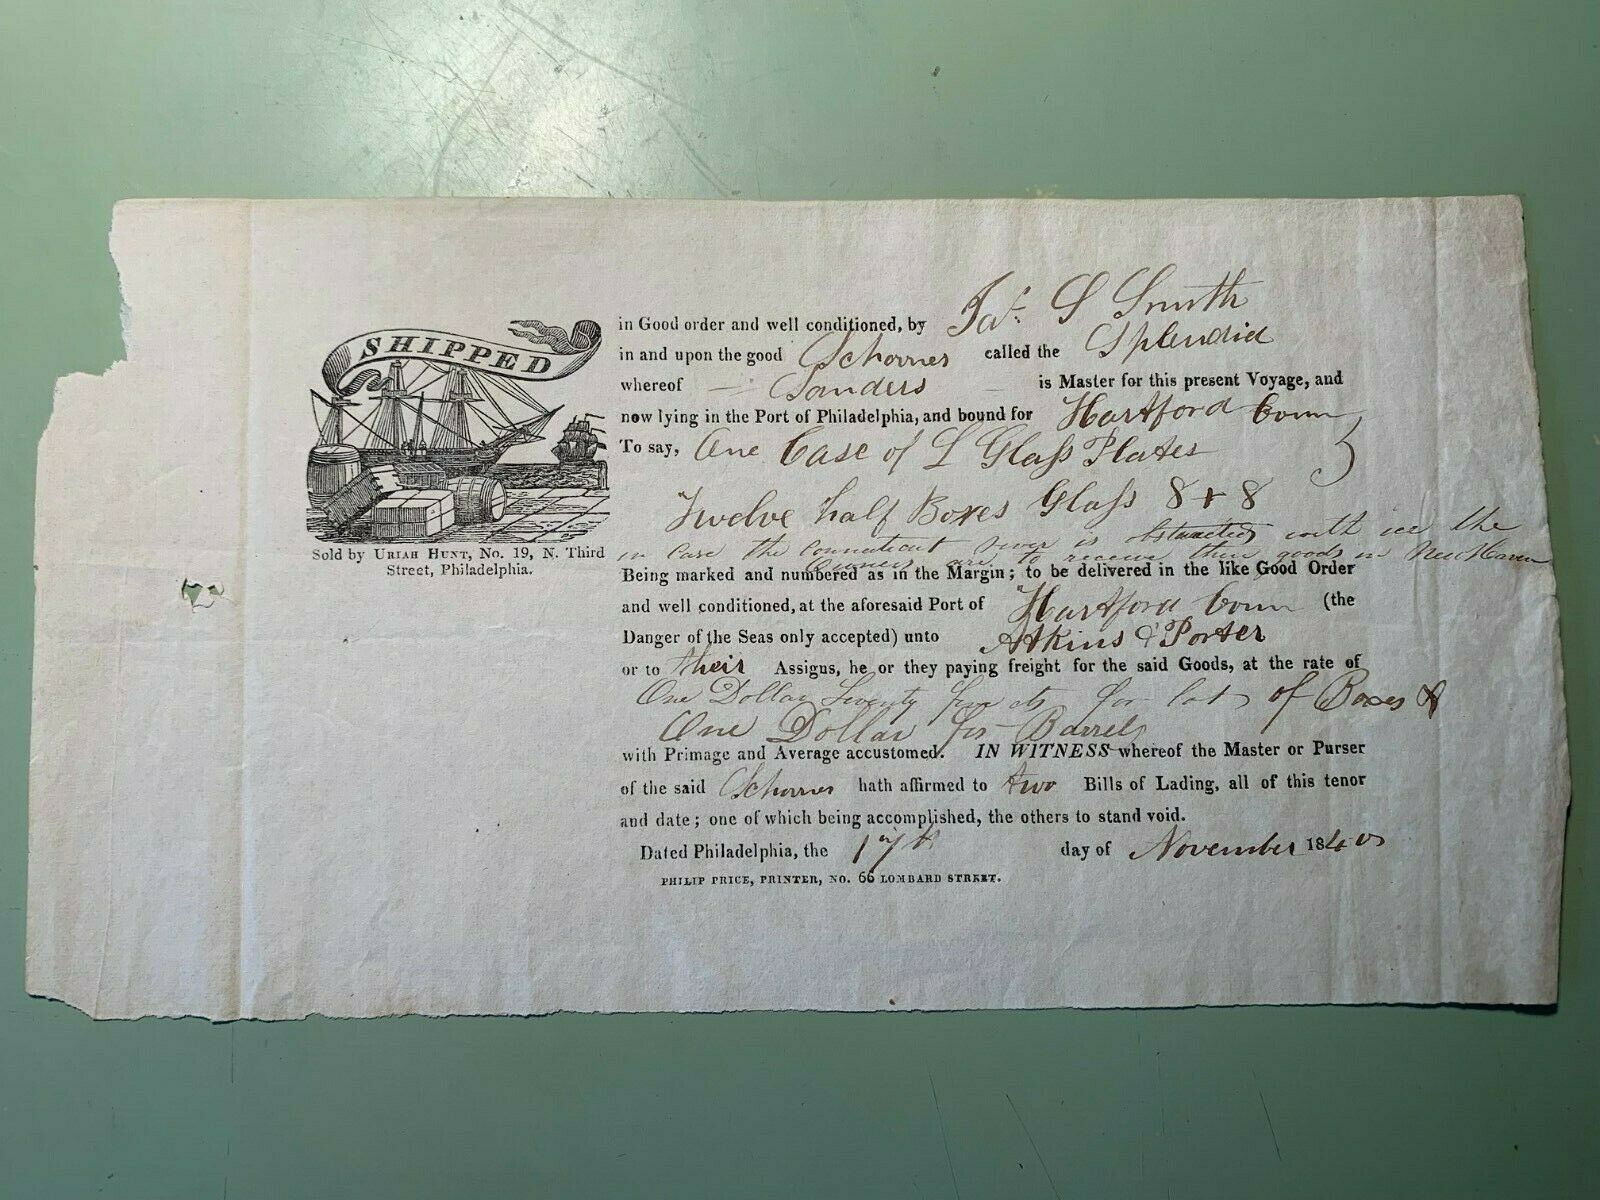 SHIPPED
Sold by URIAH HUNT, No. 19, N. Third
Street, Philadelphia.
in Good order and well conditioned, by Jas. S Smith
in and upon the good Schooner called the Splendid
whereof — Sanders — is Master for this present Voyage, and
now lying in the Port of Philadelphia, and bound for Hartford Conn
To say, One Case of L Glass Plates
Twelve half Boxes Glass 8 + 8
in Case the Connecticut river is obstructed with ice the
Owners are to receive their goods in New Haven
Being marked and numbered as in the Margin; to be delivered in the like Good Order
and well conditioned, at the aforesaid Port of Hartford Conn (the
Danger of the Seas only accepted) unto Atkins & Porter
or to their Assigns, he or they paying freight for the said Goods, at the rate of
One Dollar Twenty five cts for lot of Boxes &
One Dollar for Barrel
with Primage and Average accustomed. IN WITNESS whereof the Master or Purser
of the said Schooner hath affirmed to two Bills of Lading, all of this tenor
and date; one of which being accomplished, the others to stand void.
Dated Philadelphia, the day of November 1840
PHILIP PRICE, PRINTER, NO. 66 LOMBARD STREET.